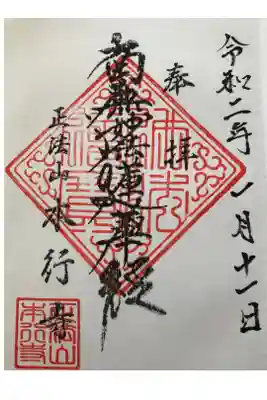 令和二年八月十一日
奉拝
南無妙法蓮華経
正法山本行寺